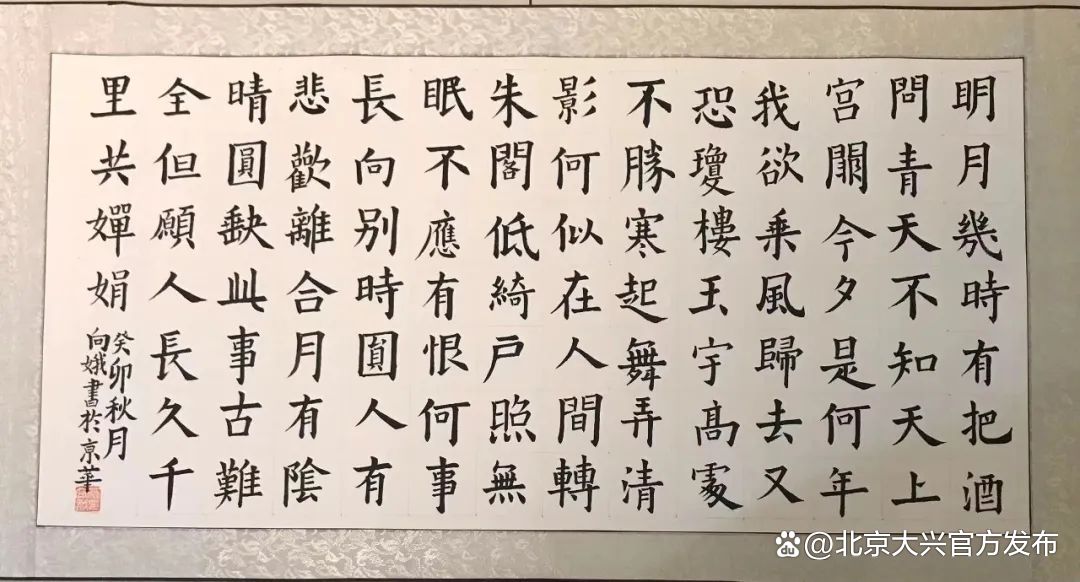 明月幾時有把酒
問青天不知天上
宫闕今夕是何年
我欲乗風歸去又
恐瓊樓玉宇髙處
不勝寒起舞弄清
影何似在人間轉
朱閣低綺户照無
眠不應有恨何事
長向别時圓人有
悲歡離合月有陰
晴圓缺此事古難
全但願人長久千
里共嬋娟
癸卯秋月
向娥書於京華
@北京大兴官方发布